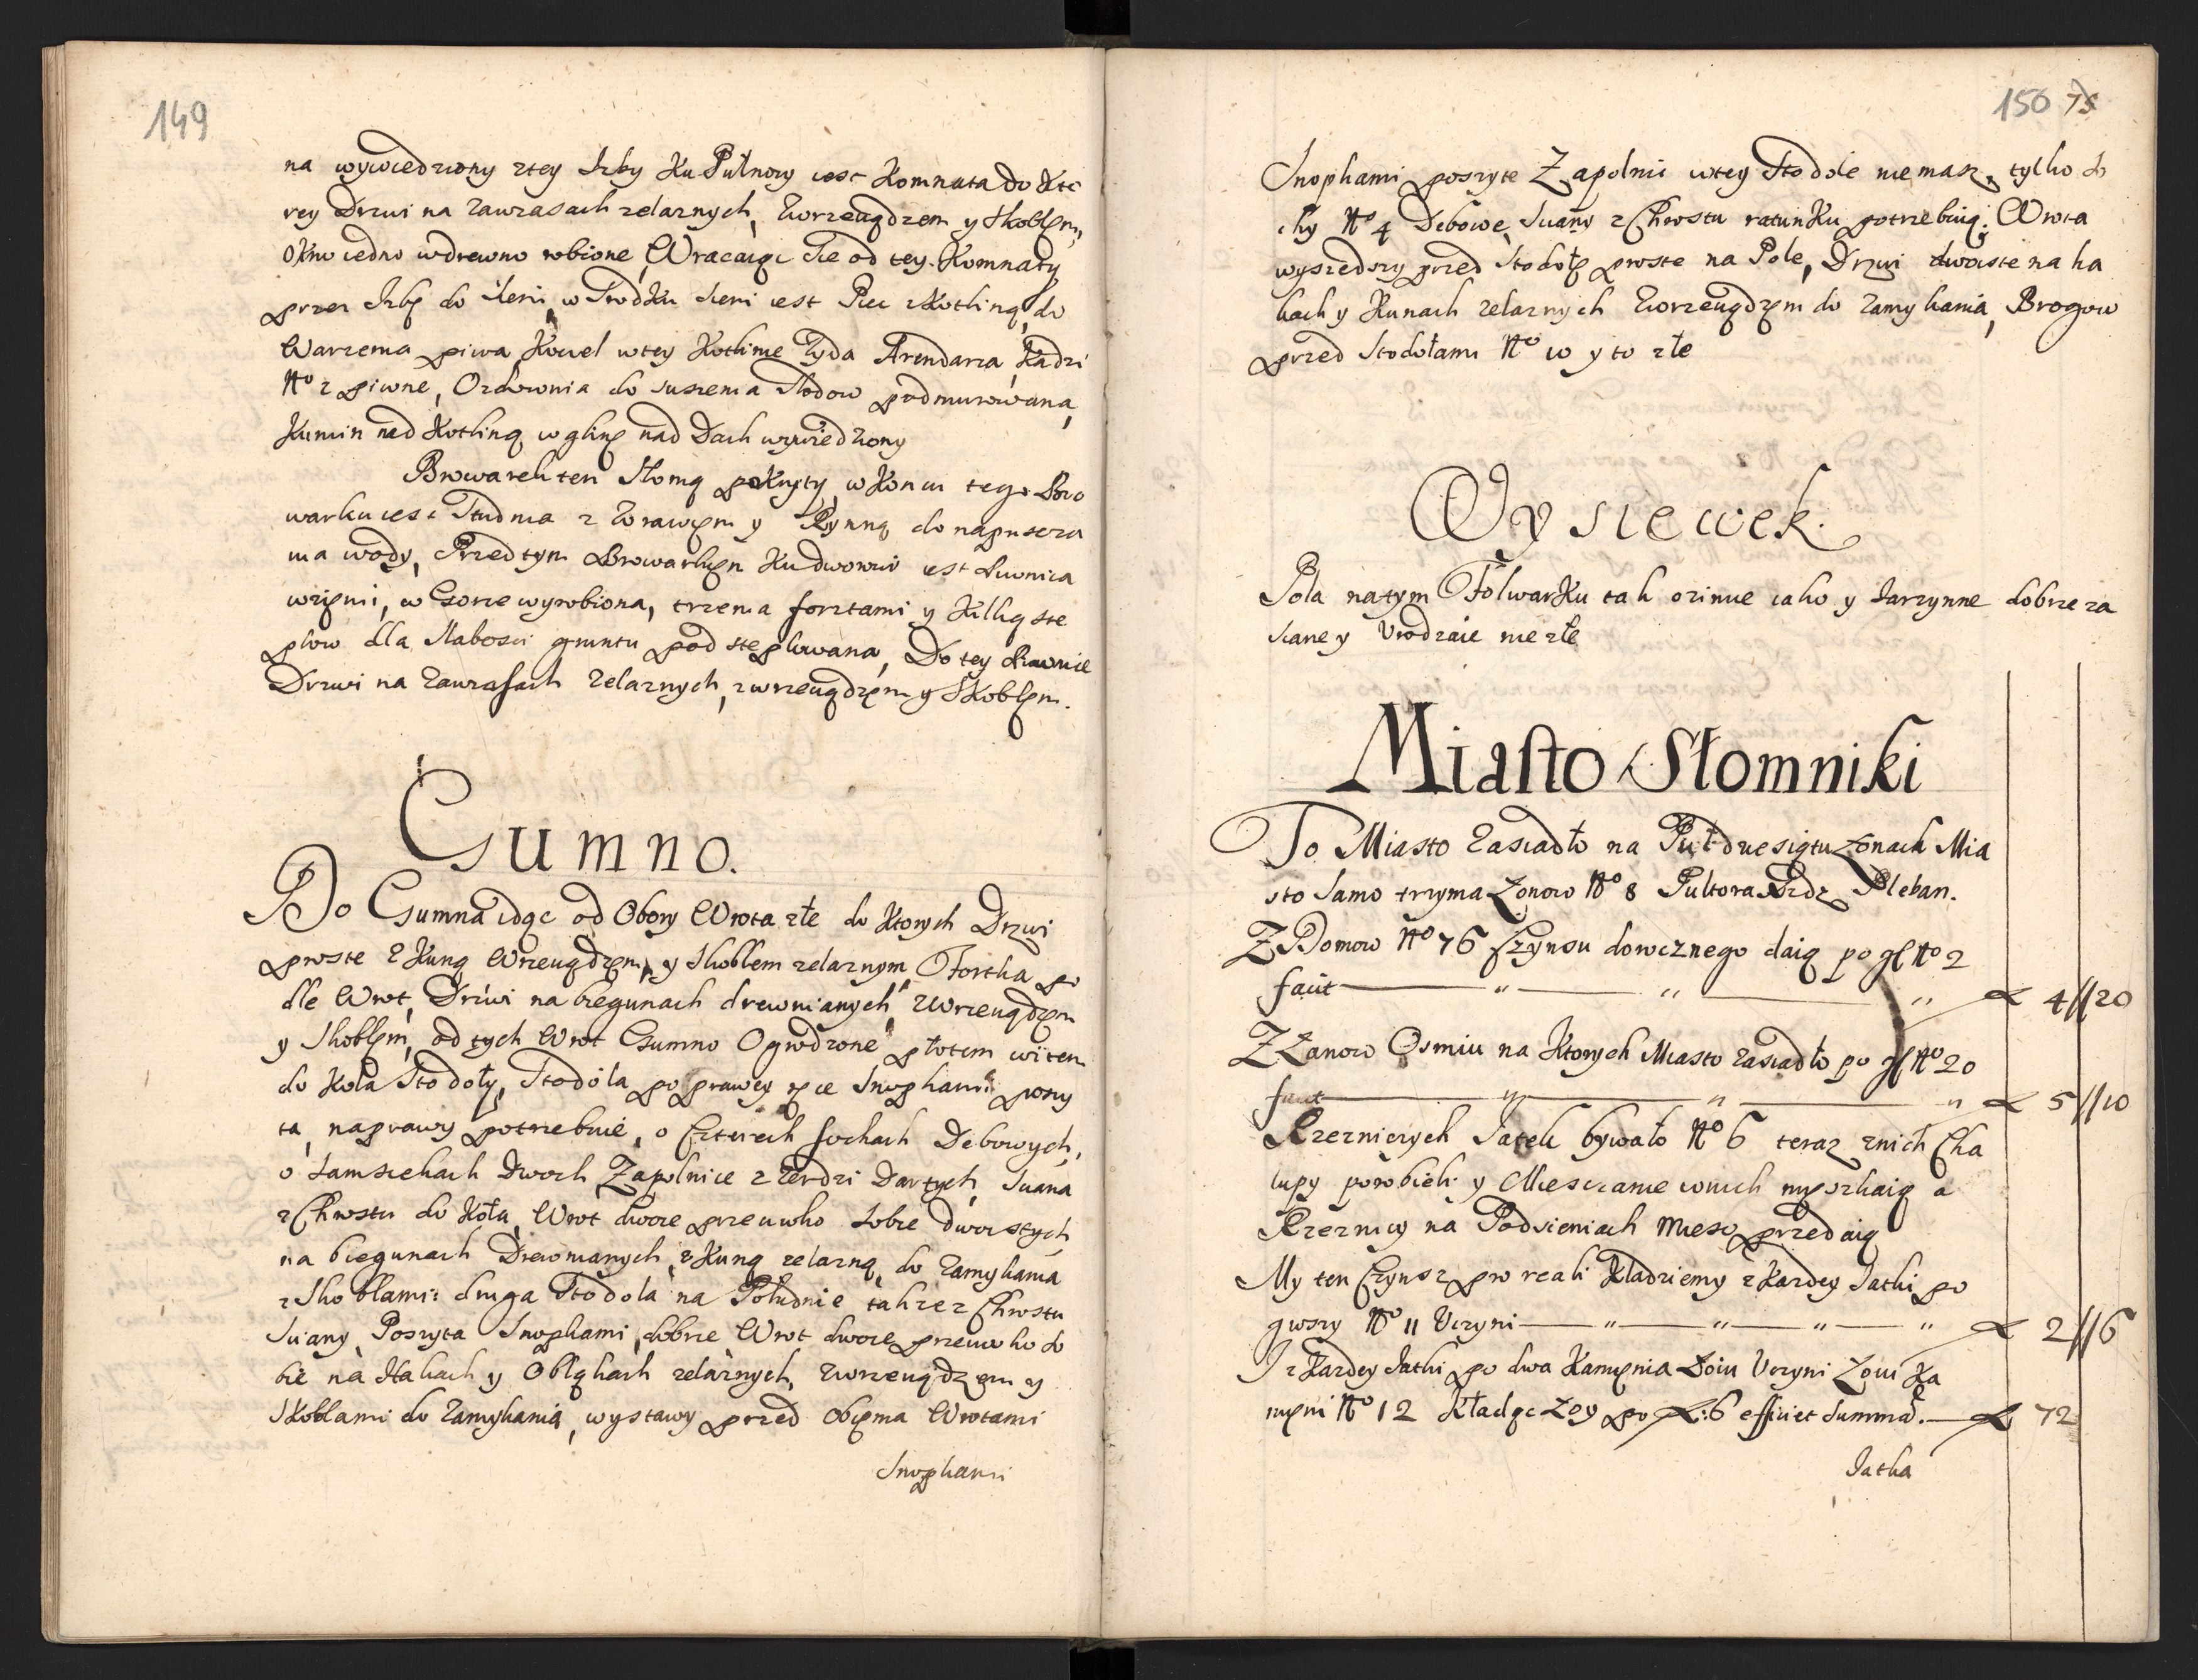 149
na wywiedziony z tey Izby Ku Pułnocy iest Komnata do Kto
rey Drzwi na zawiasach zelaznych, zwrzeciądzem y Skoblem,
Okno iedno w drewno robione, Wracaiąc Sie od tey Komnaty
przez Izbę do Sieni, w Srodku Sieni iest Piec z Kotliną, do
Warzenia piwa, Kocieł w tey Kotlinie Zyda Arendarza, Kadzi
No 2 piwne, Ozdownia do suszenia Słodow podmurowana,
Kumin nad Kotliną w glinę nad Dach wywiedziony
Browarek ten Słomą pokryty, w Koncu tego Bro
warku iest Studnia z Zorawiem y Rynną do napuszcza
nia wody, Przed tym Browarkiem Ku dworowi iest Piwnica
w ziemi, w Gorze wyrobiona, trzema forztami y Kilką ste
plow dla słabosci gruntu podsteplowana, Do tey Piwnice
Drzwi na zawiasach Zelaznych, z wrzeciądzem y Skoblem.
Gumno.
Do Gumna idąc od Obory Wrota złe do Ktorych Drzwi
proste z Kuną Wrzeciądzem, y Skoblem zelaznym Fortka po
dle Wrot, Drzwi na biegunach drewnianych, z Wrzeciądzem
y Skoblem, od tych Wrot Gumno Ogrodzone płotem
do Koła Stodoły, Stodola po prawey ręce Snopkami poszy
ta, naprawy potrzebuie, o Czterech sochach Debowych,
o Samsiekach Dwoch Zapolnice z Zerdzi Dartych, Sciana
z Chrostu do Koła, Wrot dwoie przeciwko Sobie dwoistych
na biegunach Drewnianych, z Kuną zelazną, do Zamykania
z Skoblami: druga Stodola na Południe takze z Chrostu
Sciany, Poszyta Snopkami, dobrze, Wrot dwoie przeciwko So
bie na Hakach y Obląkach zelaznych, z wrzeciądzem y
Skoblami do Zamykania, wystawy przed Obiema Wrotami
Snopkami
150 75
Snopkami poszyte Zapolnic w tey Stodole nie masz, tylko So
chy No 4 Debowe, Sciany z Chrostu ratunku potrzebuią; Wrota
wyszedszy przed Stodołę proste na Pole, Drzwi dwoiste na ha
kach y Kunach zelaznych zwrzeciądzem do zamykania, Brogow
przed Stodołami No 10 y to złe
Wysiewek.
Pola na tym Folwarku tak ozimie iako y Iarzynne dobrze za
siane y Vrodzaie nie złe
Miasto Słomniki
To Miasto Zasiadło na Puł dziesiątu Łanach Mia
sto Samo trzyma Łanow No 8 Pultora Xiądz Pleban.
Z Domow No 76 Czynszu dorocznego daią po gl No 2
faiit — " — " — " 4 // 20
Z Łanow Osmiu na Ktorych Miasto Zasiadło po gl No 20
faiit — " — " — " 5 // 10
Rzezniczych Iatek bywało No 6 teraz z nich Cha
lupy porobieli y Miesczanie w nich mięszkaią a
Rzeznicy na Podsieniach Mieso przedaią
My ten Czynsz pro reali Kladziemy z Kazdey Iatki po
groszy No 11 Vczyni — " — " — " — " 2 // 6
I z Kazdey Iatki po dwa Kamienia Łoiu Vczyni Łoiu Ka
mieni No 12 Kładąc Łoy po 6 efficiet Summa. — 72
Iatka